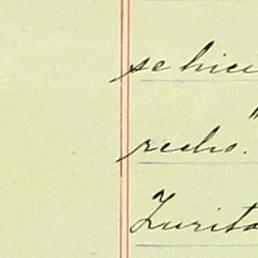 se hici
recho. "
Zurita